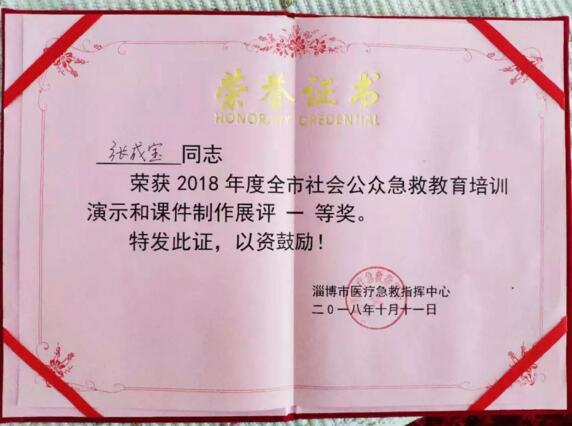 荣誉证书
HONORARY CREDENTIAL
张成宝 同志
荣获 2018 年度全市社会公众急救教育培训
演示和课件制作展评 一 等奖。
特发此证，以资鼓励！
淄博市医疗急救指挥中心
二0一八年十月十一日